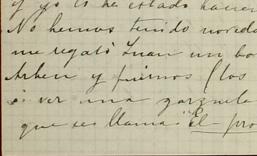 y yo lo he estado
No hemos tenido noved
me regaló Juan un bo
Arhen y fuimos (los
a ver una zarzuela
que se llama "El pro